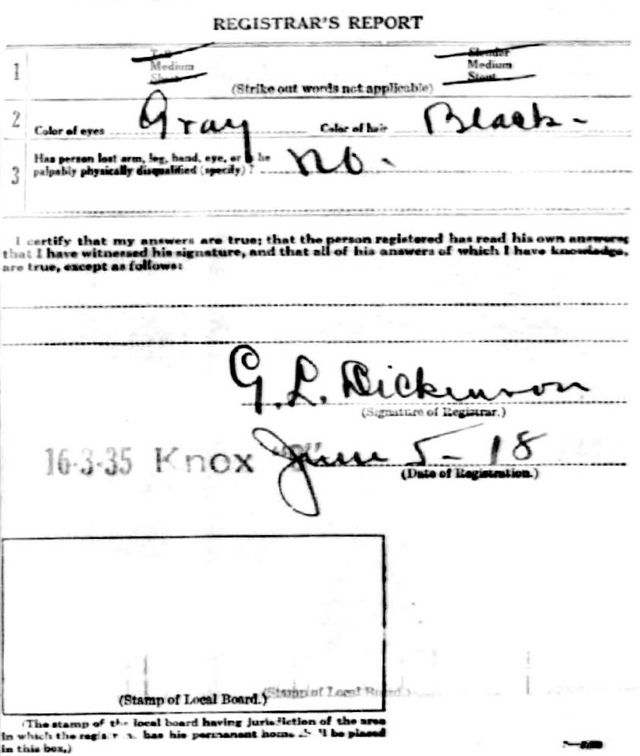 REGISTRAR'S REPORT
1
Tall
Medium
Short
Slender
Medium
Stout
(Strike out words not applicable)
2 Color of eyes Gray Color of hair Black -
3 Has person lost arm, leg, hand, eye, or he
palpably physically disqualified (specify)? no -
I certify that my answers are true; that the person registered has read his own answers;
that I have witnessed his signature, and that all of his answers of which I have knowledge,
are true, except as follows:
G. L. Dickinson
(Signature of Registrar.)
16-3-35 Knox June 5 - 18
(Date of Registration.)
(Stamp of Local Board.) (Stamp of Local Board.)
(The stamp of the local board having jurisdiction of the area
in which the has his permanent home be placed
in this box.)